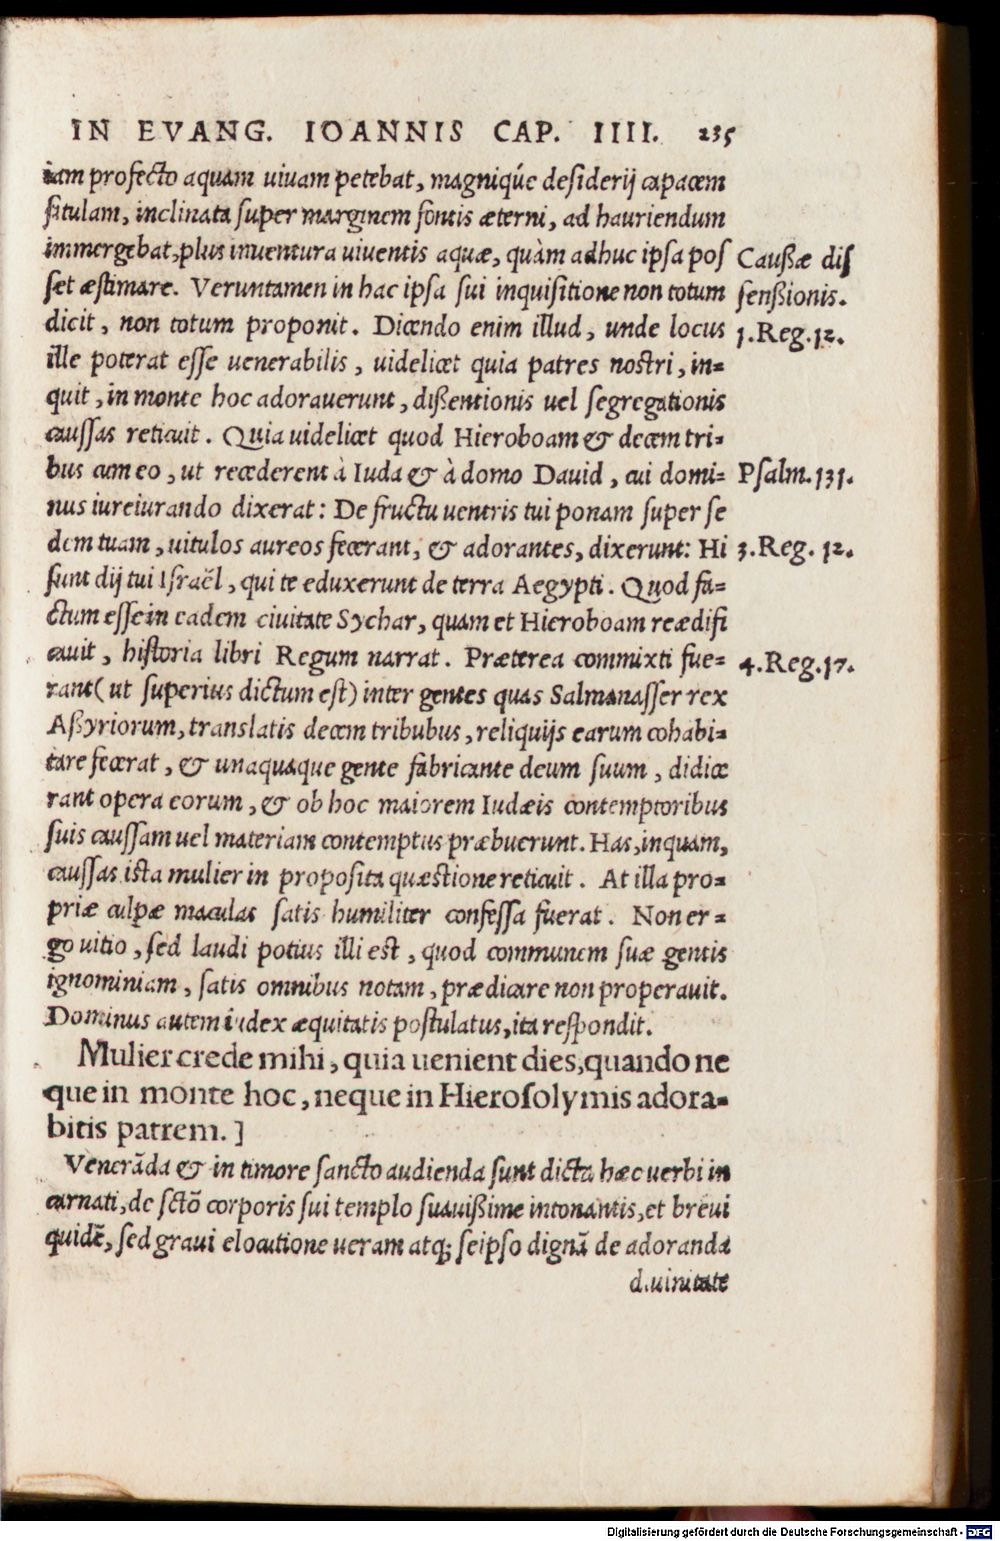 IN EVANG. IOANNIS CAP. IIII. 235
iam profecto aquam uiuam petebat, magniqúe desiderij capacem
situlam, inclinata super marginem fontis æterni, ad hauriendum
immergebat, plus inuentura uiuentis aquæ, quàm adhuc ipsa pos
set æstimare. Veruntamen in hac ipsa sui inquisitione non totum
dicit, non totum proponit. Dicendo enim illud, unde locus
ille poterat esse uenerabilis, uidelicet quia patres nostri, in=
quit, in monte hoc adorauerunt, dißentionis uel segregationis
caussas reticuit. Quia uidelicet quod Hieroboam & decem tri=
bus cum eo, ut recederent à Iuda & à domo Dauid, cui domi=
nus iureiurando dixerat: De fructu uentris tui ponam super se
dem tuam, uitulos aureos fecerant, & adorantes, dixerunt: Hi
sunt dij tui Israël, qui te eduxerunt de terra Aegypti. Quod fa=
ctum esse in eadem ciuitate Sychar, quam et Hieroboam reædifi
cauit, historia libri Regum narrat. Præterea commixti fue=
rant (ut superius dictum est) inter gentes quas Salmanasser rex
Aßyriorum, translatis decem tribubus, reliquijs earum cohabi=
tare fecerat, & unaquaque gente fabricante deum suum, didice
rant opera eorum, & ob hoc maiorem Iudæis contemptoribus
suis caussam uel materiam contemptus præbuerunt. Has, inquam,
caussas ista mulier in proposita quæstione reticuit. At illa pro=
priæ culpæ maculas satis humiliter confessa fuerat. Non er=
go uitio, sed laudi potius illi est, quod communem suæ gentis
ignominiam, satis omnibus notam, prædicare non properauit.
Dominus autem iudex æquitatis postulatus, ita respondit.
Mulier crede mihi, quia uenient dies, quando ne
que in monte hoc, neque in Hierosolymis adora=
bitis patrem.]
Venerãda & in timore sancto audienda sunt dicta hæc uerbi in
carnati, de sctõ corporis sui templo suauißime intonantis, et breui
quidẽ, sed graui elocutione ueram atq; seipso dignã de adoranda
diuinitate
Caußæ dis
senßionis.
1. Reg. 12.
Psalm. 131.
3. Reg. 12.
4. Reg. 17.
Digitalisierung gefördert durch die Deutsche Forschungsgemeinschaft - DFG